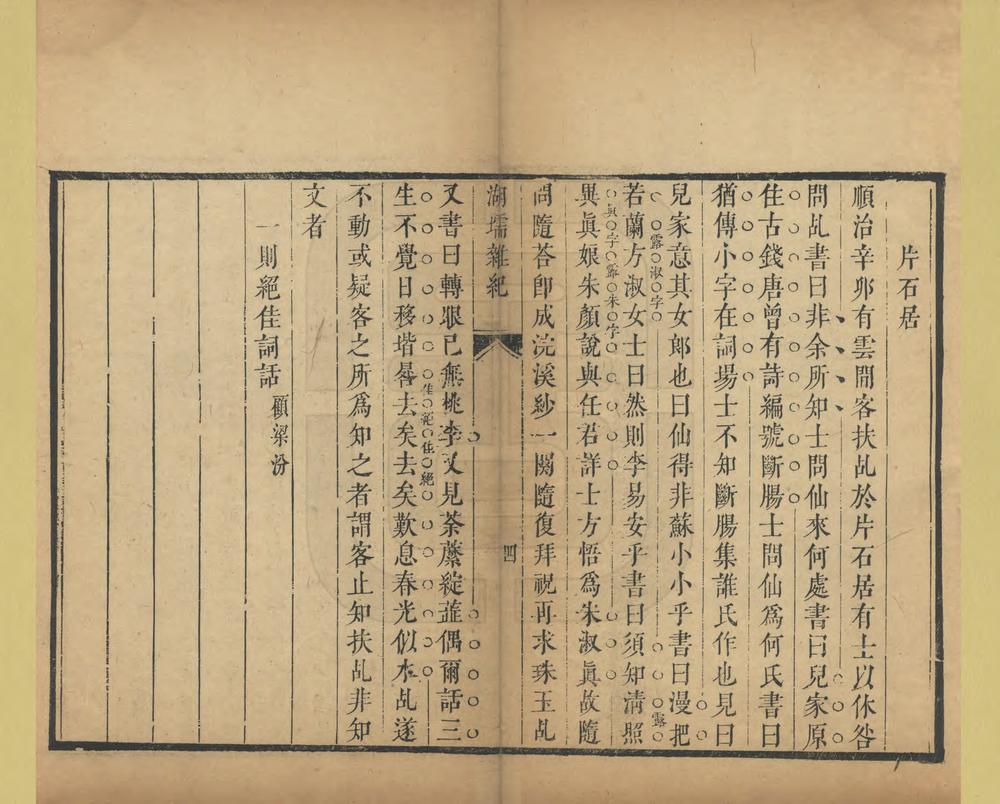 片石居
順治辛卯有雲間客扶乩於片石居有士以休咎
問乩書曰非余所知士問仙來何處書曰兒家原
住古錢唐曾有詩編號斷腸士問仙爲何氏書曰
猶傳小字在詞場士不知斷腸集誰氏作也見曰
兒家意其女郎也曰仙得非蘇小小乎書曰漫把
露淑字
若蘭方淑女士曰然則李易安乎書曰須知清照
露
眞字露朱字
異眞娘朱顏說與任君詳士方悟爲朱淑眞故隨
問隨荅卽成浣溪紗一闋隨復拜祝再求珠玉乩
湖壖雜紀
四
又書曰轉眼已無桃李又見荼蘼綻蕋偶爾話三
佳絕佳絕
生不覺日移堦晷去矣去矣歎息春光似水乩遂
不動或疑客之所爲知之者謂客止知扶乩非知
文者
一則絕佳詞話 顧梁汾